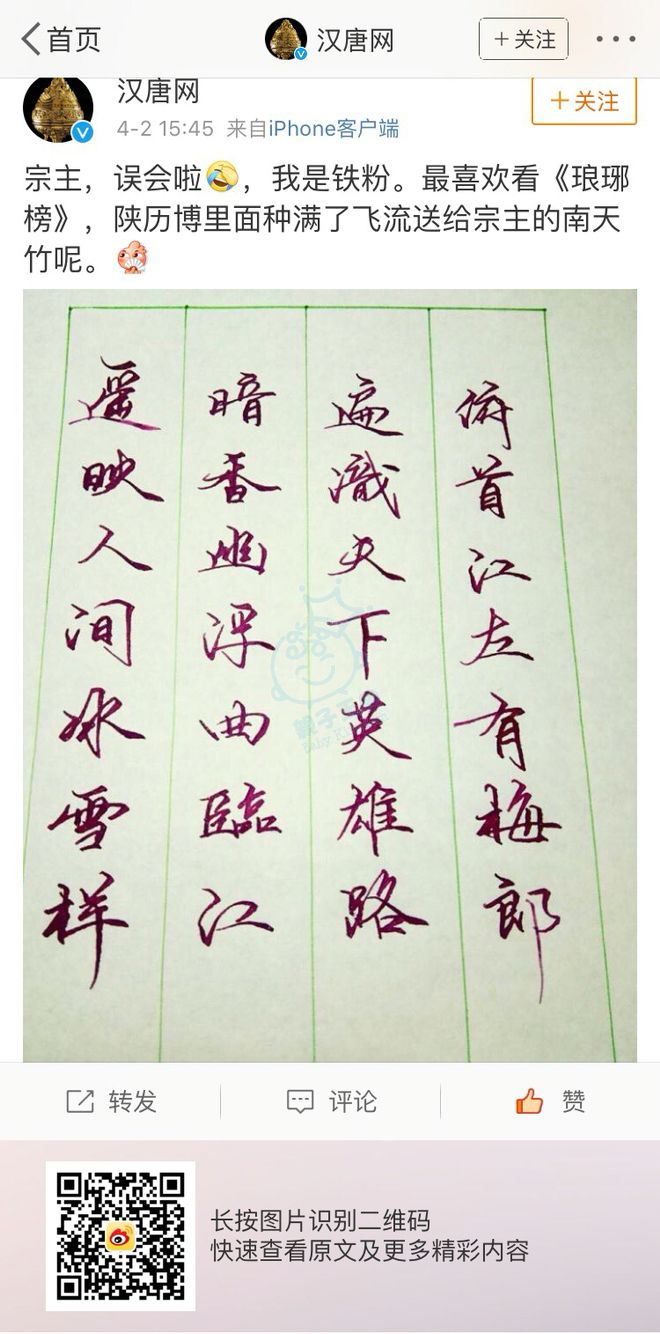 首页
汉唐网
+关注
汉唐网
+关注
4-2 15:45 来自iPhone客户端
宗主，误会啦，我是铁粉。最喜欢看《琅琊
榜》，陕历博里面种满了飞流送给宗主的南天
竹呢。
遥映人间冰雪样
暗香幽浮曲臨江
遍識天下英雄路
俯首江左有梅郎
转发
评论
赞
长按图片识别二维码
快速查看原文及更多精彩内容